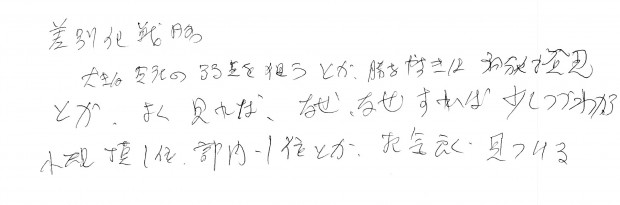 差別化戦略
大手は変化の弱点を狙うとか、勝ちやすきは
とか、よく見れば、なぜ、なぜすれば少しづつわかる
小規模1位、部内1位とか、お金えく見つける